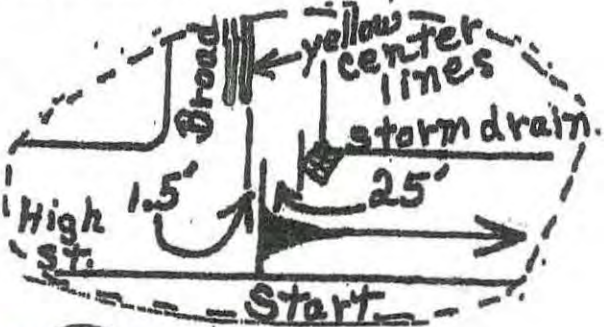 Broad
yellow
center
lines
storm drain.
1.5'
25'
High
St.
Start